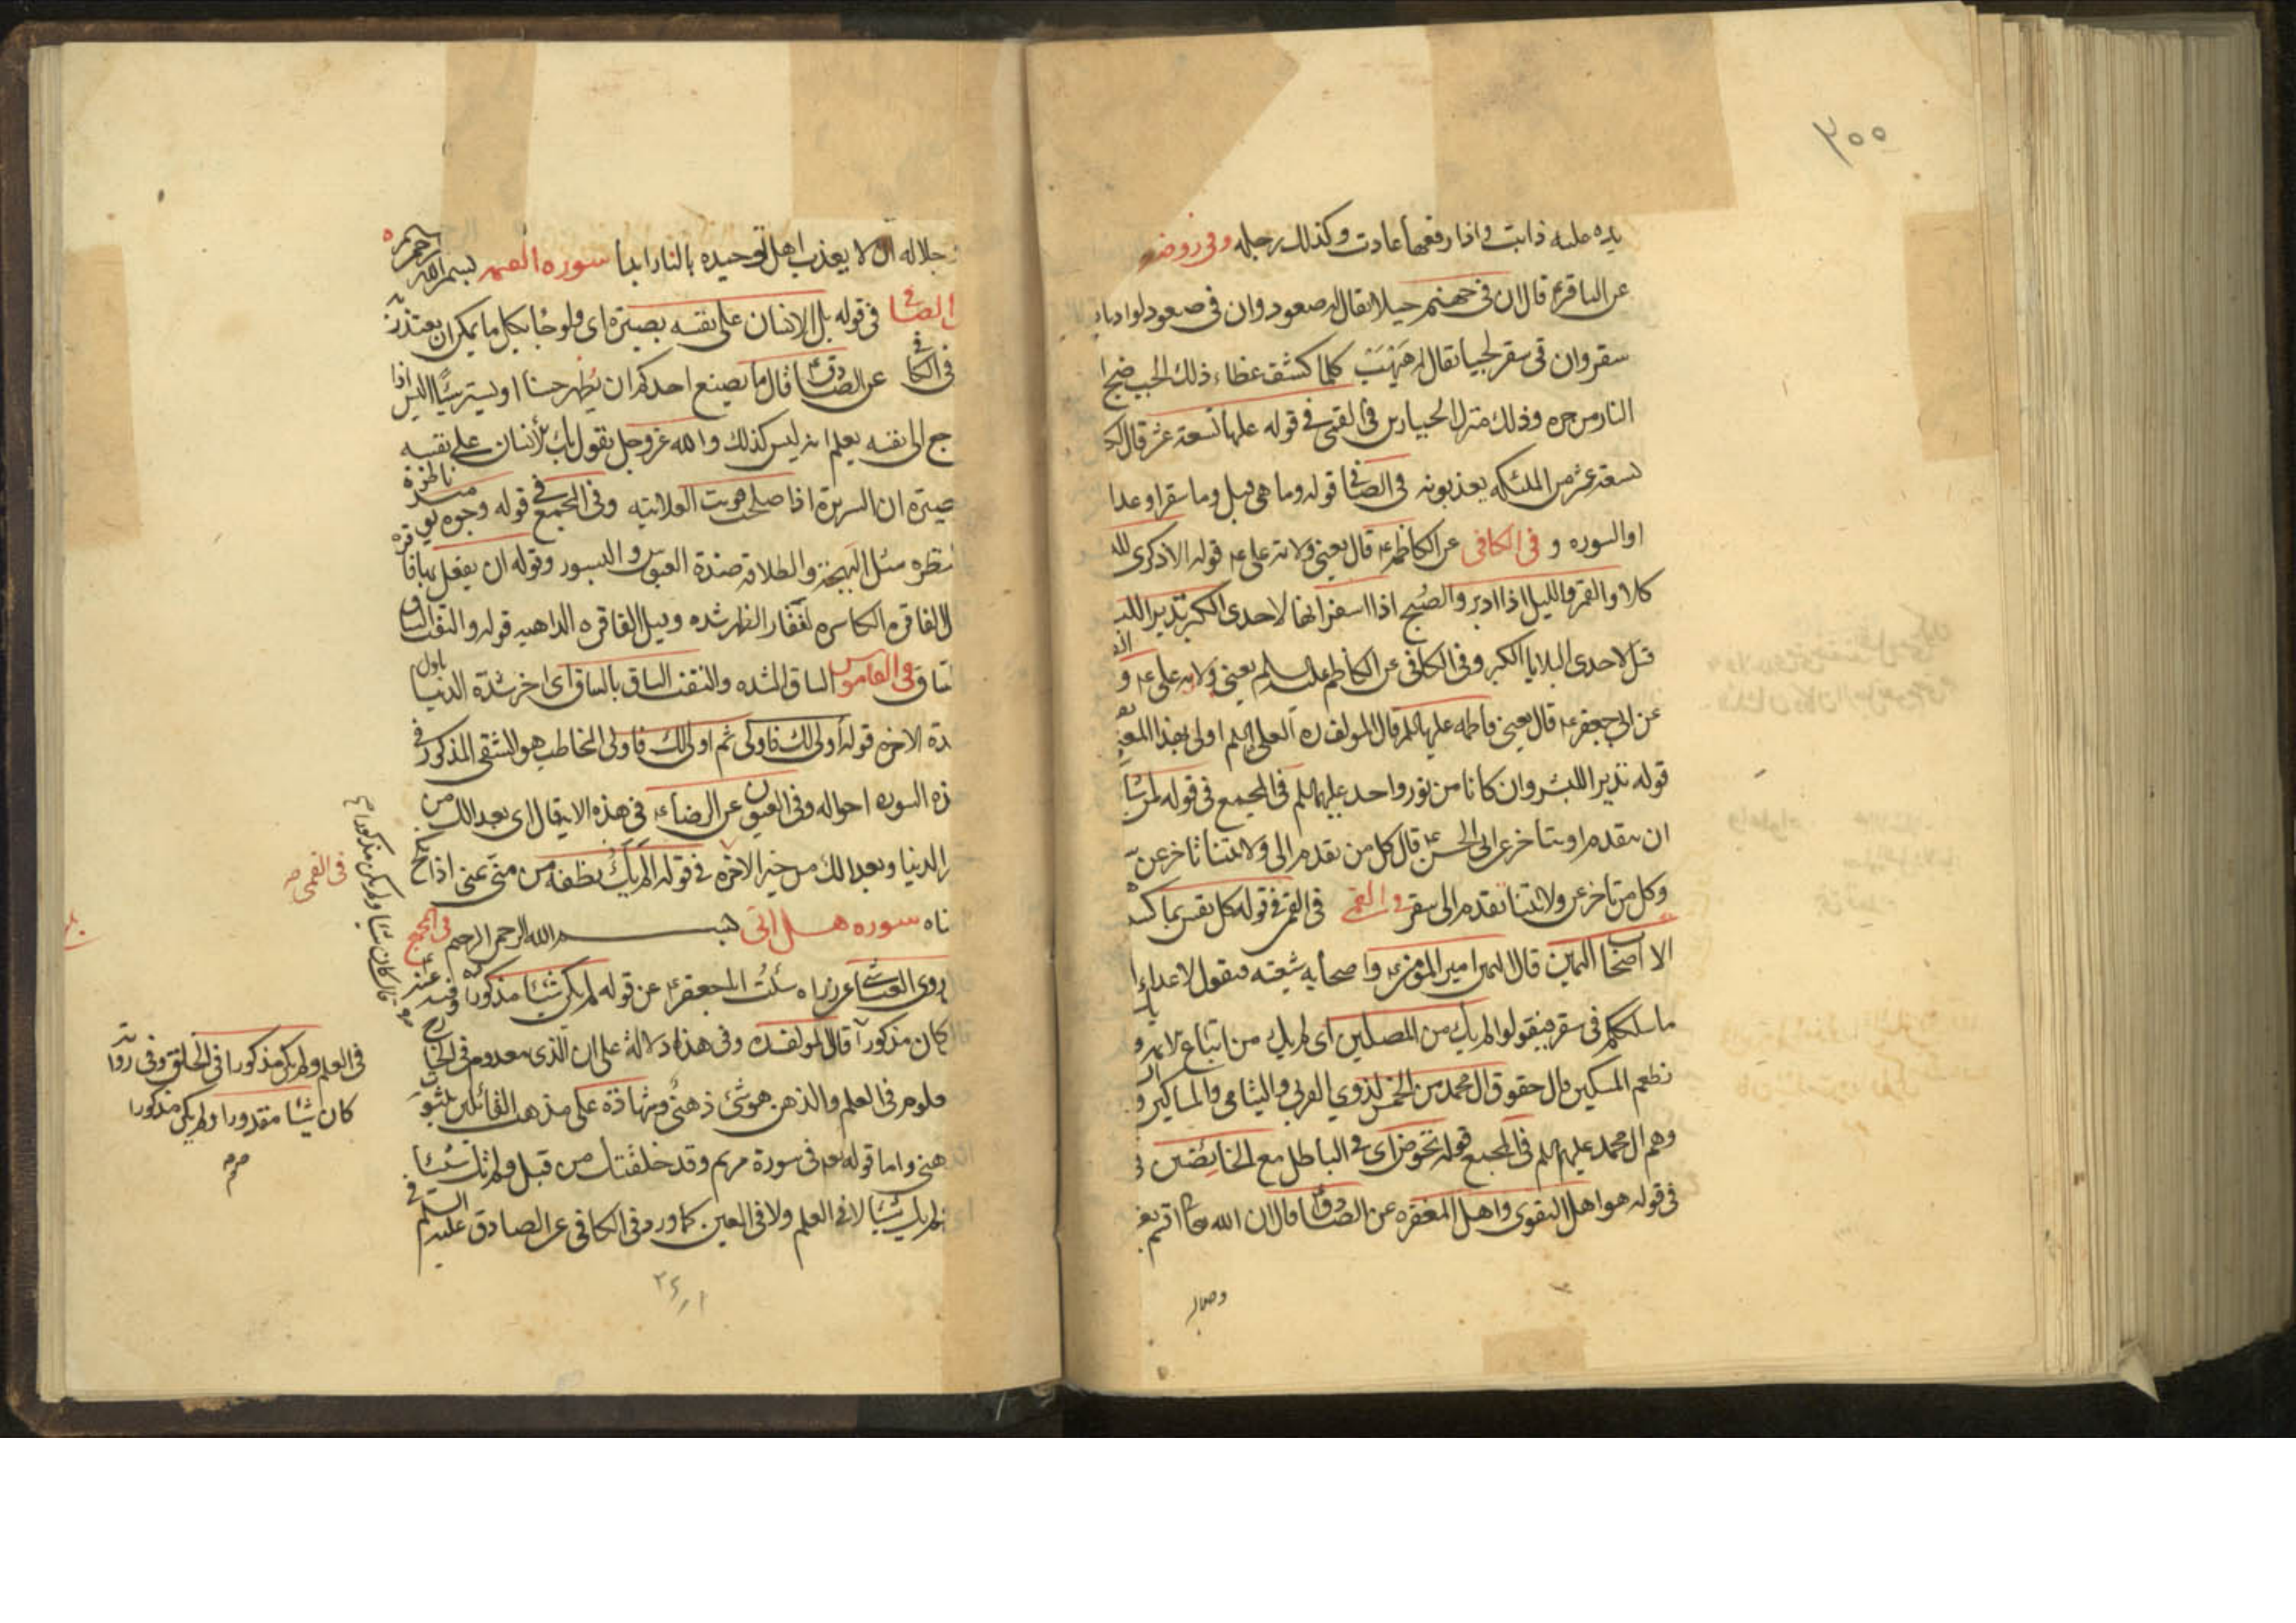 ٣٠٠
يده عليه ذابت واذا رفعها عادت وكذلك رجله وفى روضه
عن الباقرع قال ان فى جهنم جبلا يقال له صعود وان فى صعود لواديا
سقر وان فى سقر لجبا يقال له هَبْهَبْ كلما كشف غطاء ذلك الجب ضج ا
النار من حره وذلك منزل الجبارين فى القمى فى قوله عليها تسعة عشر قال لكل
تسعة عشر من الملئكه يعذبونه فى الصافى قوله وما هى قيل وما سقر او عدا
او السوره و فى الكافى عن الكاظم ع قال يعنى ولاية على ع قوله الا ذكرى لل
كلا والقمر والليل اذا ادبر والصُبح اذا اسفر انها لاحدى الكبر نذيرا للب
قيل لاحدى البلايا الكبر وفى الكافى عن الكاظم عليه السلم يعنى ولايه على ع و
عن ابى جعفر ع قال يعنى فاطمه عليها السلم قال المولف ره العلم اولى بهذا المعنى
قوله نذيرا للبشر وان كانا من نور واحد عليهما السلم فى المجمع فى قوله لمن شا
ان يتقدم او يتاخر عن ابى الحسن ع قال كل من تقدم الى ولايتنا تاخر عن
وكل من تاخر عن ولايتنا تقدم الى سقر فى القمى فى قوله كل نفس بما كس
الا اصحاب اليمين قال اليمين امير المؤمنين ع واصحابه شيعته فيقول لاعداء ا
ما سلككم فى سقر فيقولوا لم يك من المصلين اى لم يك من اتباع الائمه و
نطعم المسكين قال حقوق ال محمد من الخمس لذوى القربى واليتامى والمساكين و
وهم ال محمد عليهم السلم فى المجمع قوله نخوض اى فى الباطل مع الخائضين
فى قوله هو اهل التقوى واهل المغفره عن الصادق ع قال ان الله تعا اقسم بعز
وجلال
جلاله ان لا يعذب اهل توحيده بالنار ابدا سوره القيمه بسم الله الرحمن الرحيم
الصافى فى قوله بل الانسان على نفسه بصيرة اى ولو جاء بكل ما يمكن ان يعتذر
فى الكافى عن الصادق ع قال ما يصنع احدكم ان يُظهر حسنا او يستر سيئًا اليس اذا
جع الى نفسه يعلم انه ليس كذلك والله عز وجل يقول بل الأنسان على نفسه
صيرة ان السريرة اذا صلحت قويت العلانيه وفى المجمع فى قوله وجوه يومئذ ناظرة
نظره مثل البهجة والطلاقه ضدة العبوس والبسور وقوله ان يفعل بها فاقره
ل الفاقره الكاسره لفقار الظهر شده وقيل الفاقره الداهيه قوله والتفت الساق
لساق وفى القاموس الساق الشده والتفت الساق بالساق اى اخر شدة الدنيا باول
دة الاخره قوله اولى لك فاولى ثم اولى لك فاولى المخاطب هو الشقى المذكور فى
ذه السوره احواله وفى العيون عن الرضا ع فى هذه الايه قال اى بعدا لك من
ر الدنيا وبعدا لك من خير الاخره فى قوله الم يك نطفه من منى يمنى اذا نكح
ناه سوره هــل اتى بســم الله الرحمن الرحيم فى المجمع
روى العياشى عن زراره سئلتُ ابا جعفر ع عن قوله لم يكن شيئا مذكورا
كان مذكورا قال المولف ره وفى هذا دلالة على ان الذى معدوم فى الخا
علوم فى العلم والذهن هو شئ ذهنى وشهادة على مذهب القائلين بثبوت
هنى واما قوله تعه فى سورة مريم وقد خلقتك من قبل ولم تك شيئا
لم يك شيئا لا فى العلم ولا فى العين كما ورد فى الكافى عن الصادق عليه السلم فى
فى القمى صه
قال كان شيئا ولم يكن مذكورا
فى العلم ولم يكن مذكورا فى الخلق وفى رواية
كان شيئا مقدورا ولم يكن مذكورا